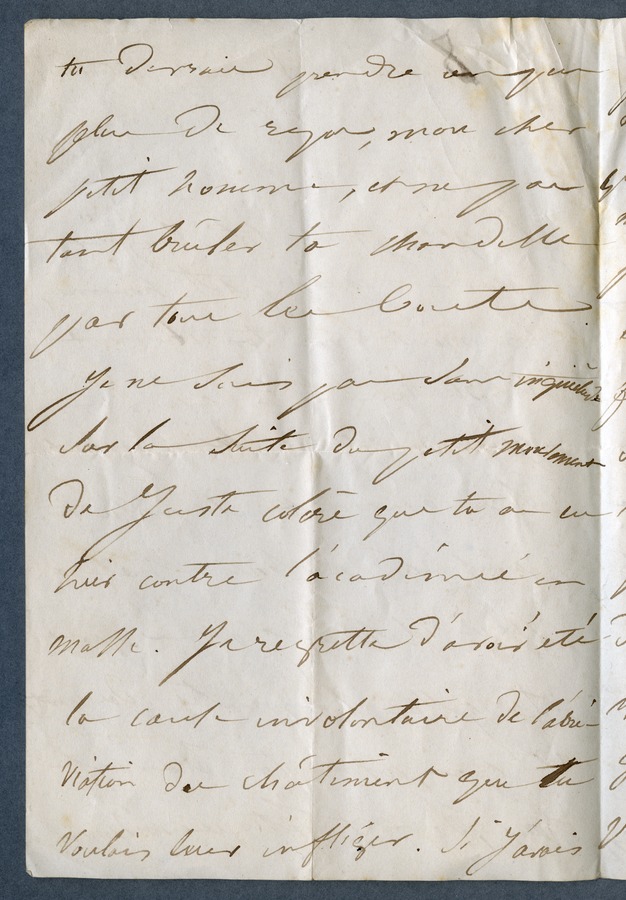 tu devrais prendre un peu
plus de repos, mon cher
petit homme, et ne pas
tant brûler ta chandelle
par tous les bouts.
Je ne suis pas sans inquiétude
sur la suite du petit mouvement
de juste colère que tu as eu
hier contre l'académie en
masse. Je regrette d'avoir été
la cause involontaire de l'abré-
viation du châtiment que tu
voulais leur infliger. Si j'avais